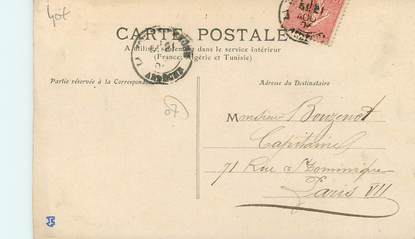 40t
CARTE POSTALE
A utiliser seulement dans le service intérieur
(France, Algérie et Tunisie)
ARDÈCHE
Partie réservée à la Correspondance
Adresse du Destinataire
07
Monsieur Bouzenot
Capitaine
71 Rue St Dominique
Paris VII